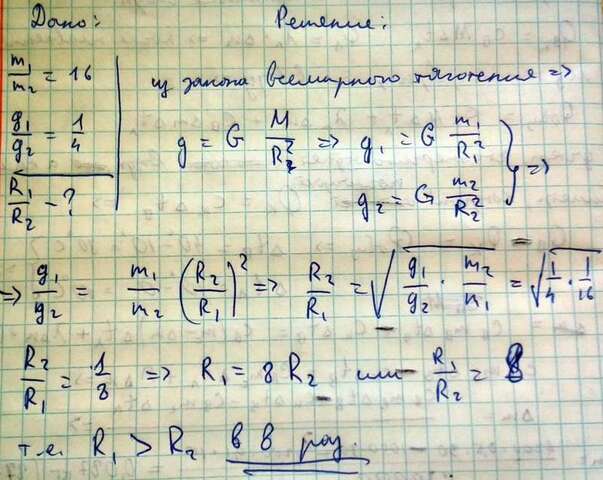 Дано:
Решение:
m₁/m₂ = 16
g₁/g₂ = 1/4
R₁/R₂ - ?
из закона всемирного тяготения =>
g = G M/R² => g₁ = G m₁/R₁²
g₂ = G m₂/R₂² } =>
=> g₁/g₂ = m₁/m₂ (R₂/R₁)² => R₂/R₁ = √(g₁/g₂ · m₂/m₁) = √(1/4 · 1/16)
R₂/R₁ = 1/8 => R₁ = 8 R₂ или R₁/R₂ = 8
т.е. R₁ > R₂ в 8 раз.